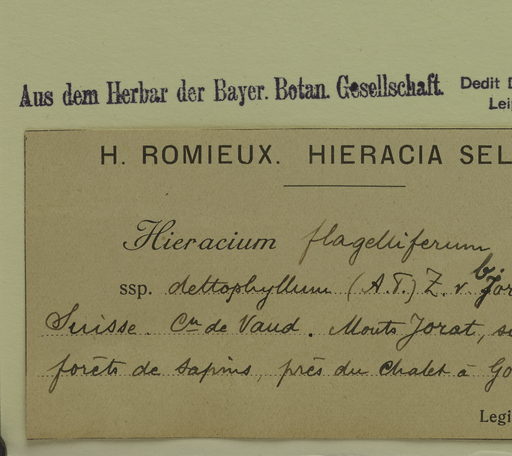 Aus dem Herbar der Bayer. Botan. Gesellschaft.
Dedit D
Lei
H. ROMIEUX. HIERACIA SEL
Hieracium flagelliferum
ssp. dettophyllum (A.T.) Z. v
Suisse. Cn de Vaud. Monts Jorat, su
forêts de sapins, près du chalet à Go
Legi